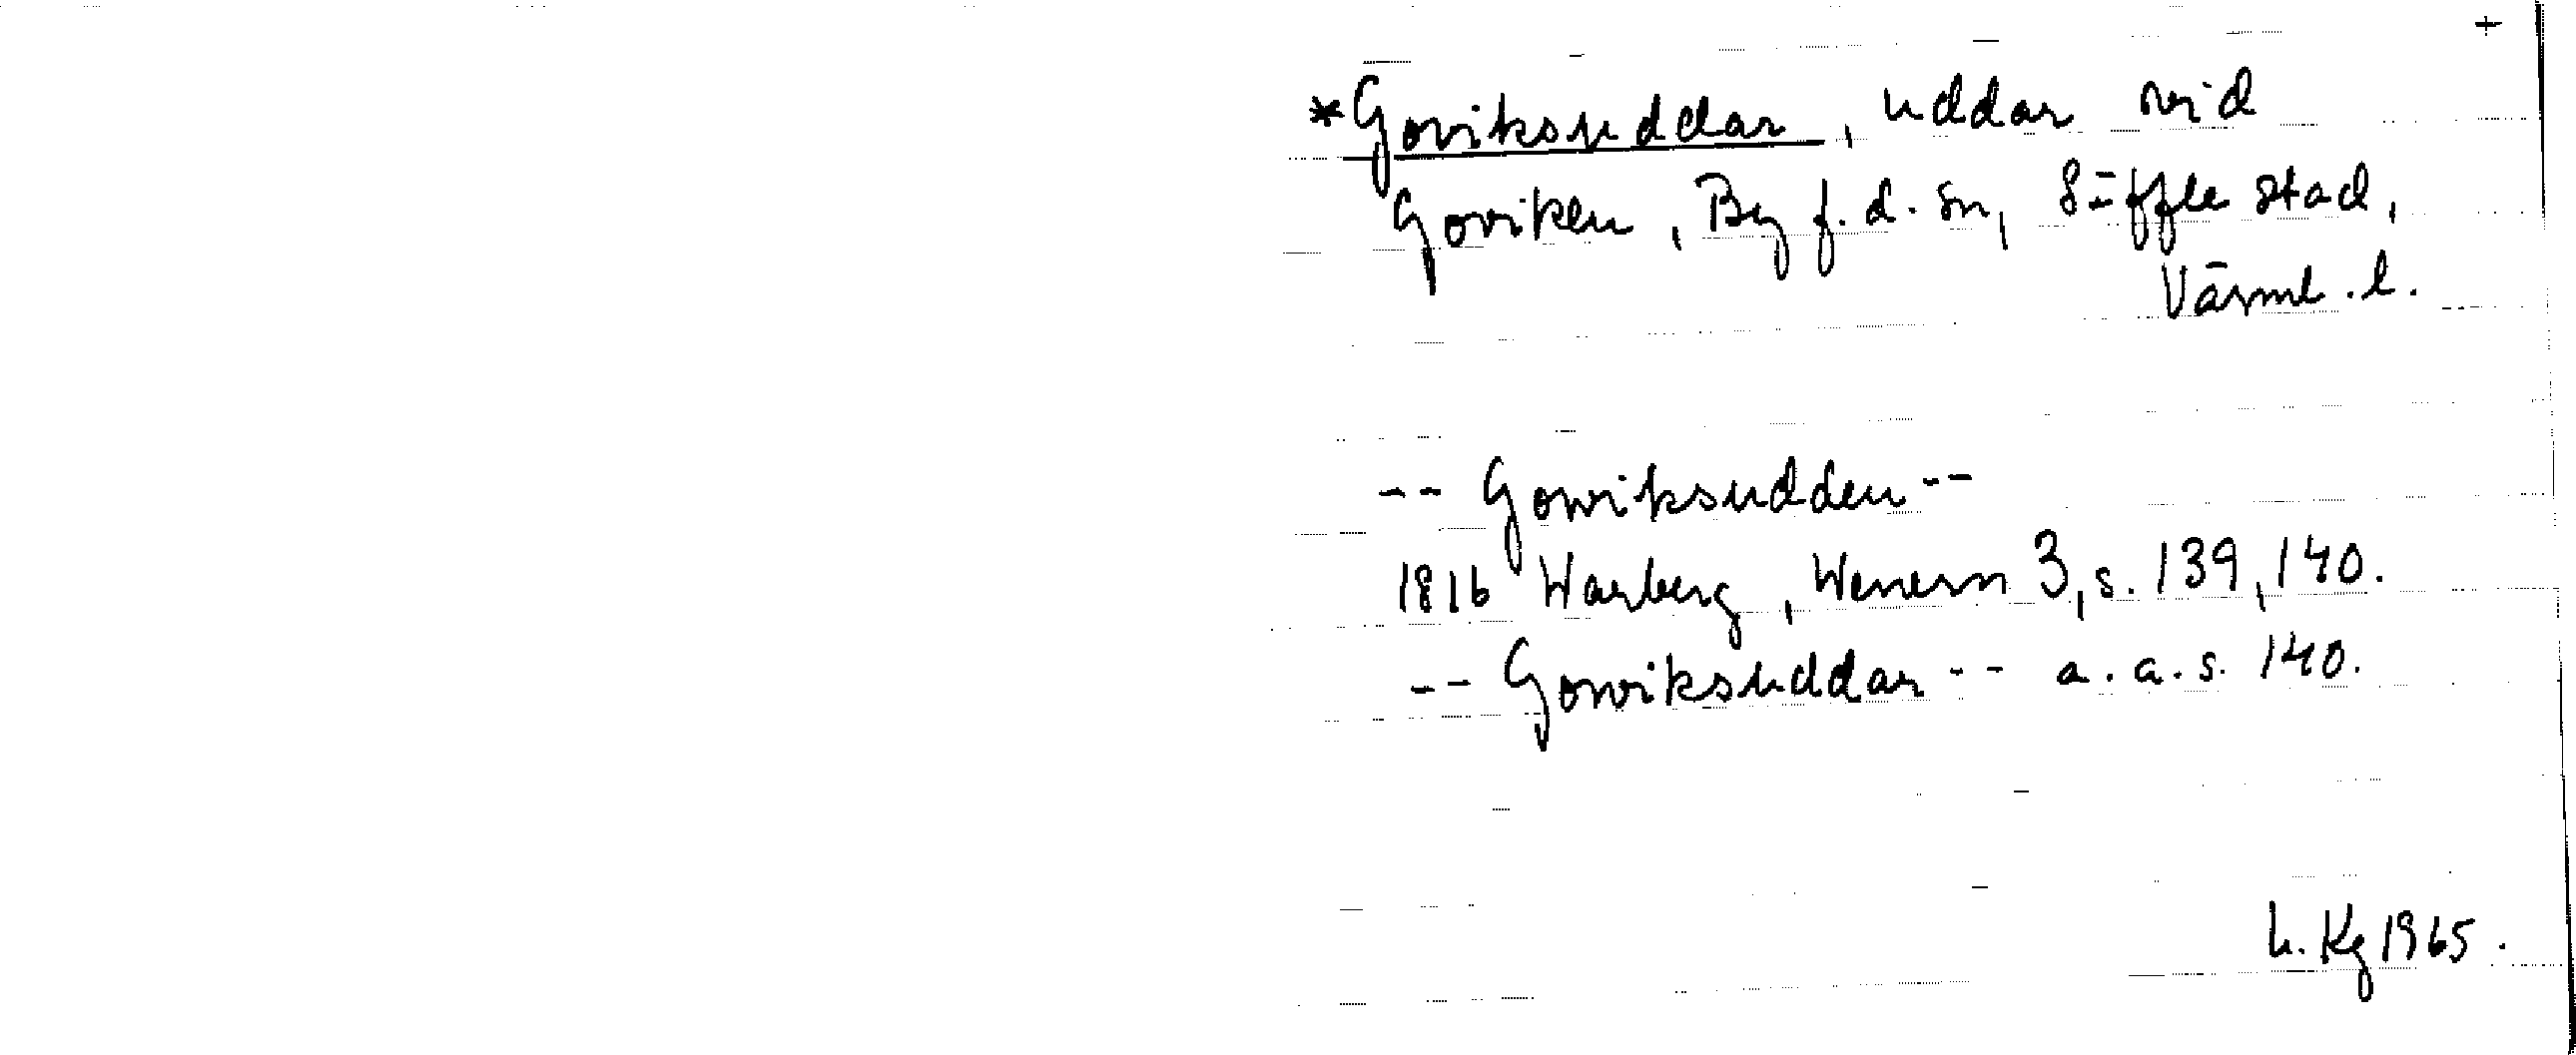 +
*Goviksuddar, uddar vid
Goviken, By f.d. sn, Säffle stad,
Värml. l.
-- Gowiksudden --
1816 Warberg, Wenern 3, s. 139, 140.
-- Gowiksuddar -- a.a.s. 140.
h. Kg 1965.